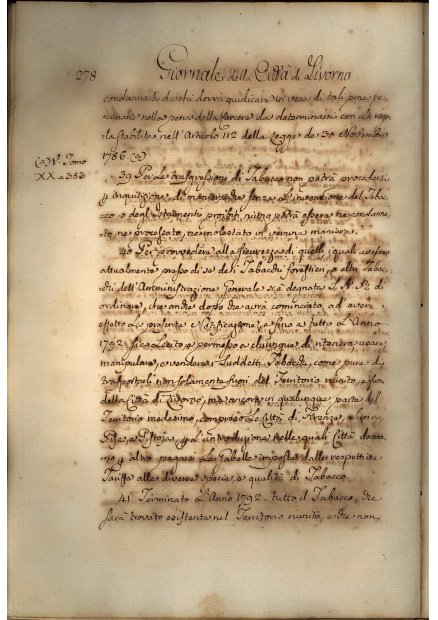 278 Giornale della Città di Livorno
condannati da chi dovrà giudicare in vece di tali pene pe-
cuniarie nella pena della Carcere da determinarsi con la rego-
la stabilita nell'Articolo 112 della Legge de 30 Novembre
1786. (a)
(a) V. Tomo
XX. a 353
39 Per le trasgressioni di Tabacco non potrà procedersi
p inquisizione, di maniera che senza l'invenzione del Tabac-
co, o degl'Istrumenti proibiti, niuno potrà essere ne condanna-
to, ne processato, ne molestato in veruna maniera.
40 Per provvedere alla sicurezza di quelli, quali avessero
attualmente presso di se de i Tabacchi forestieri, o altri Tabac-
chi dell'Amministrazione Generale si è degnata S. A. R. di
ordinare, che anche dopo che avrà cominciato ad avere
effetto la presente Notificazione, e fino a tutto l'Anno
1792. sia Lecito, e permesso a chiunque di ritenere, usare,
manipulare, e vendere i suddetti Tabacchi, come pure di
trasportarli non solamente fuori del Territorio riunito, e fuori
della Città di Livorno, ma ancora in qualunque parte del
Territorio medesimo, compreso le Città di Firenze, Siena,
Pisa, e Pistoja, p l'introduzione nelle quali Città dovran-
no p altro pagarsi le Gabelle imposte dalle respettive
Tariffe alle diverse specie, e qualità di Tabacco.
41. Terminato l'Anno 1792. tutto il Tabacco, che
sarà trovato esistente nel Territorio riunito, e che non